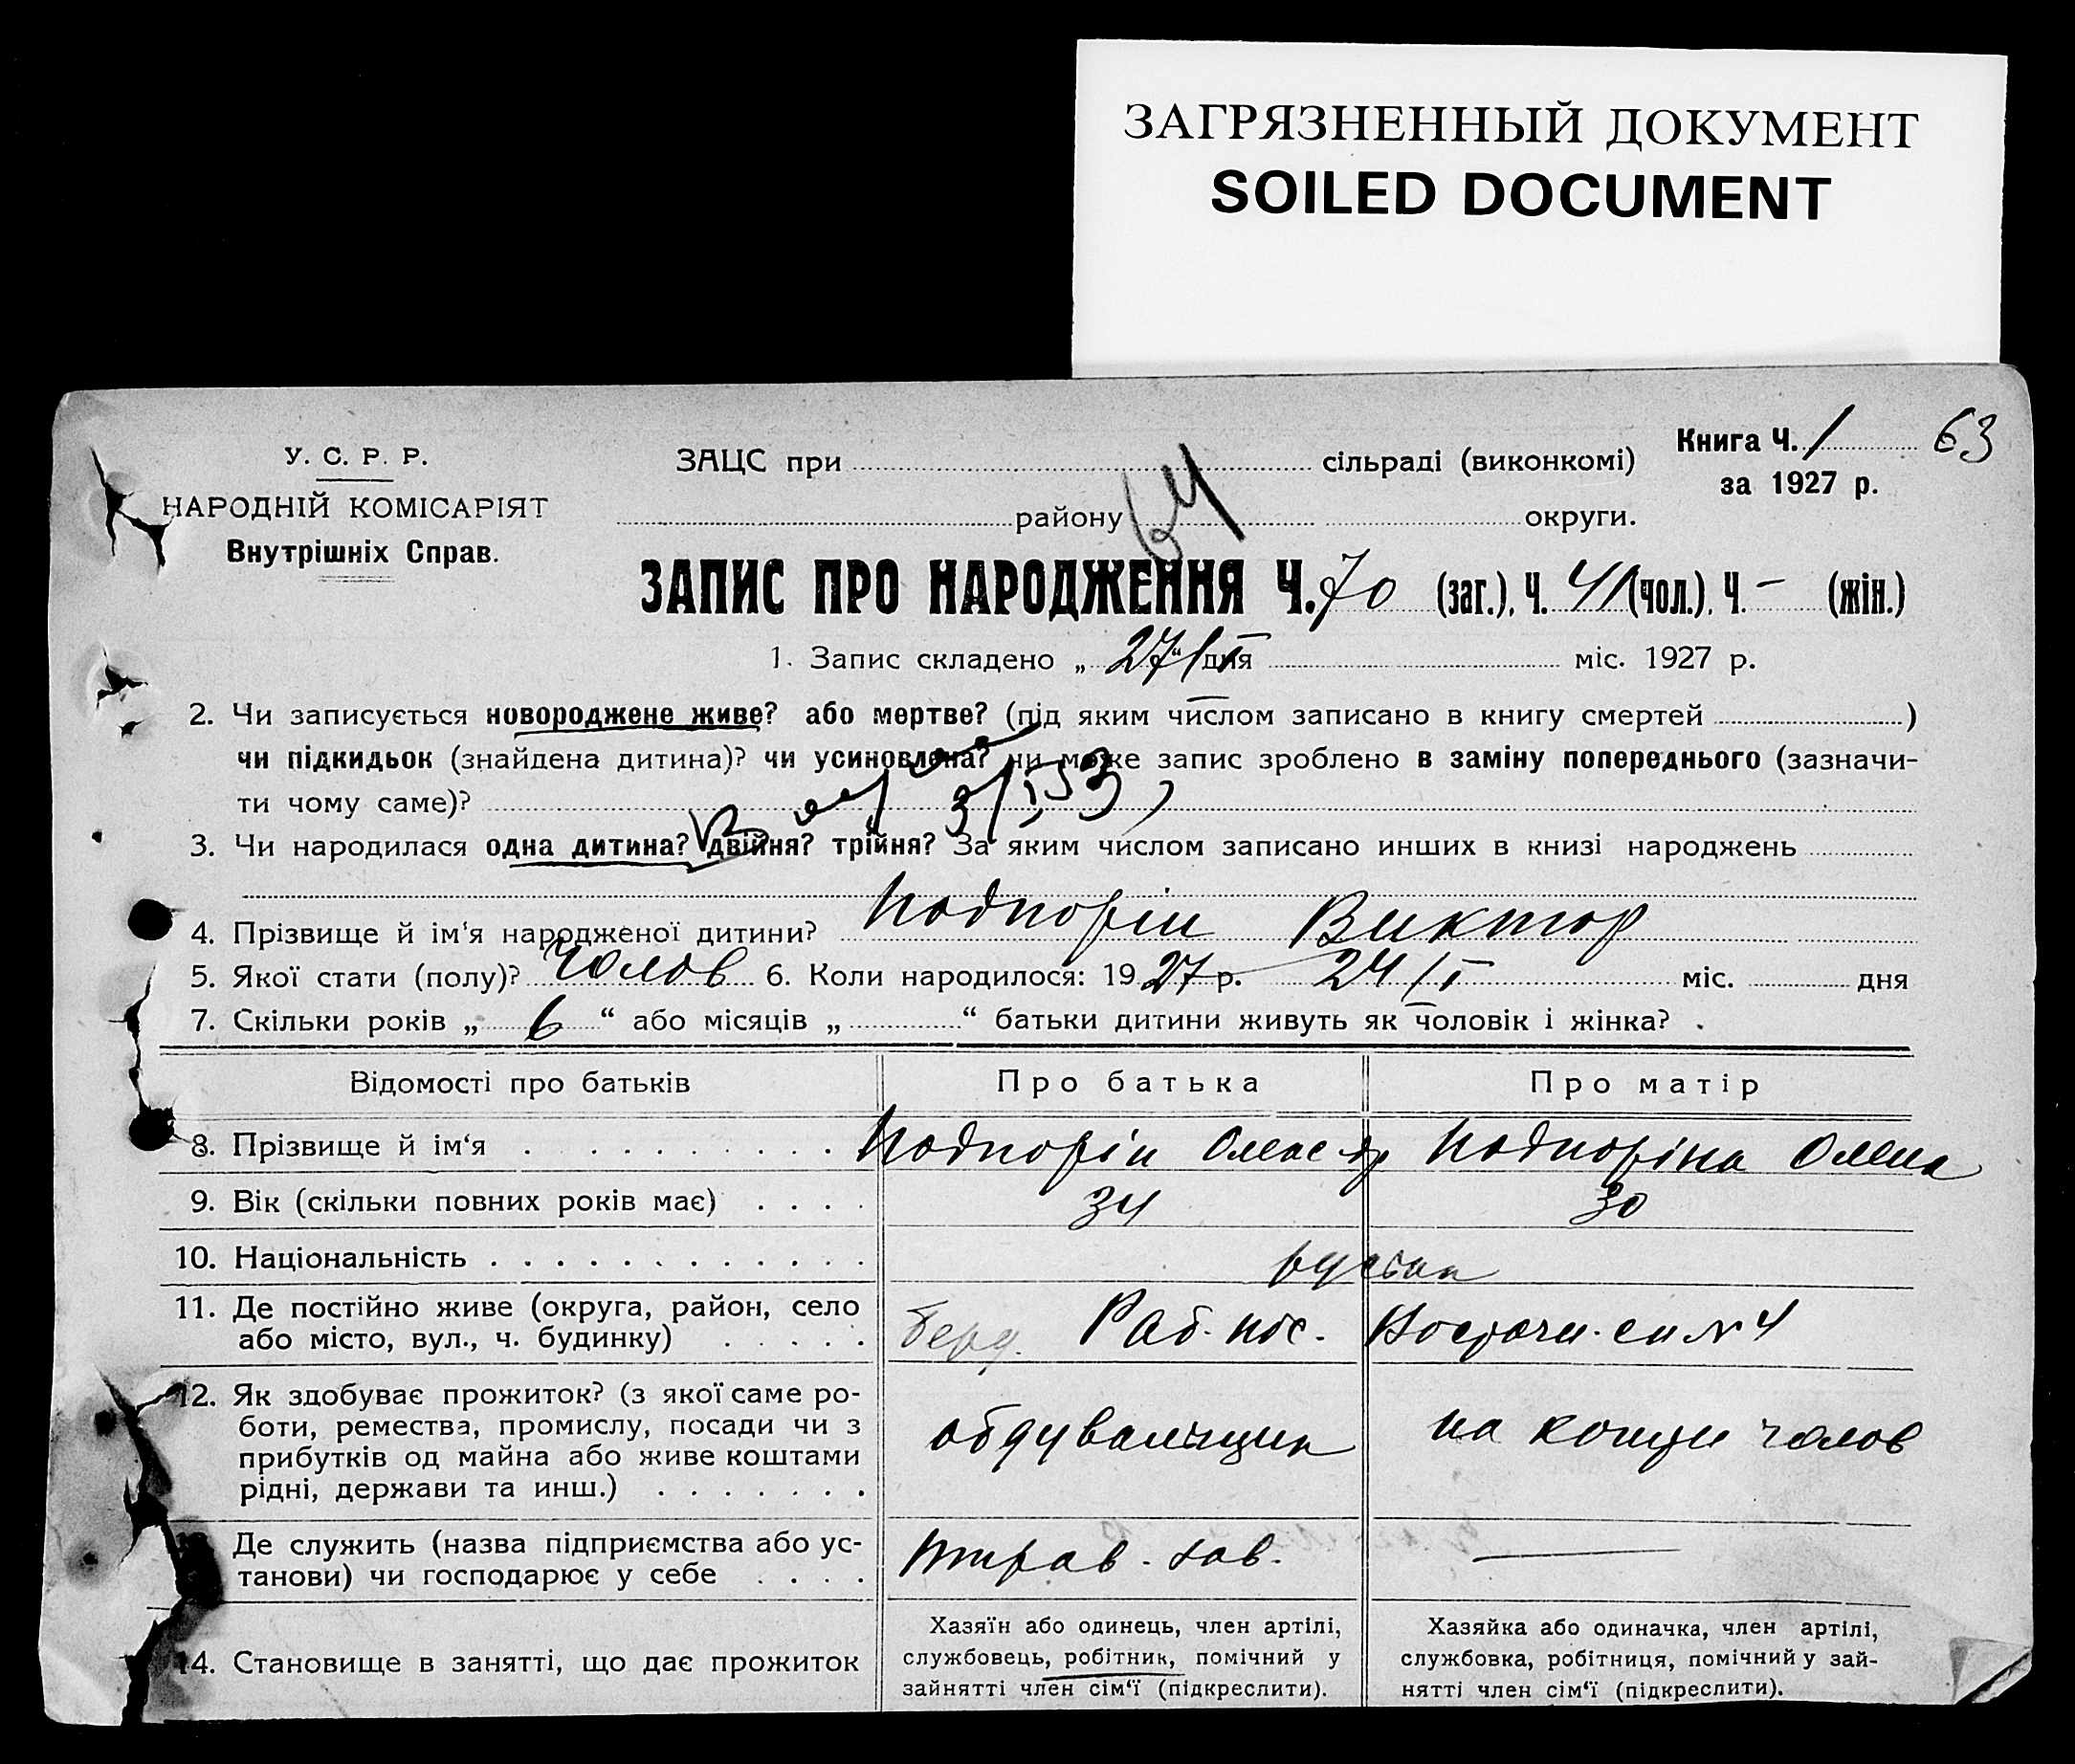 ЗАГРЯЗНЕННЫЙ ДОКУМЕНТ
SOILED DOCUMENT
У. С. Р. Р.
НАРОДНІЙ КОМІСАРІЯТ
Внутрішніх Справ.
ЗАЦС при сільраді (виконкомі)
району 64 округи.
Книга Ч. 1 63
за 1927 р.
ЗАПИС ПРО НАРОДЖЕННЯ Ч. 70 (заг.), Ч. 41 (чол.), Ч. – (жін.)
1. Запис складено „ 27/I “ дня міс. 1927 р.
2. Чи записується новороджене живе? або мертве? (під яким числом записано в книгу смертей )
чи підкидьок (знайдена дитина)? чи усиновлена? чи може запис зроблено в заміну попереднього (зазначи-
ти чому саме)? 3/I 53
3. Чи народилася одна дитина? двійня? трійня? За яким числом записано инших в книзі народжень
4. Прізвище й ім'я народженої дитини? Подпорін Виктор
5. Якої стати (полу)? Чолов 6. Коли народилося: 1927 р. 24/I міс. дня
7. Скільки років „ 6 “ або місяців „ “ батьки дитини живуть як чоловік і жінка?
Відомості про батьків Про батька Про матір
8. Прізвище й ім'я Подпорін Олександр Подпоріна Олена
9. Вік (скільки повних років має) 34 30
10. Національність
11. Де постійно живе (округа, район, село Раб. пос.
або місто, вул., ч. будинку) № 4
12. Як здобуває прожиток? (з якої саме ро-
боти, ремества, промислу, посади чи з
прибутків од майна або живе коштами
рідні, держави та инш.)
обдувальщик на кошти чолов
13. Де служить (назва підприємства або ус-
танови) чи господарює у себе зав. —
14. Становище в занятті, що дає прожиток
Хазяїн або одинець, член артілі,
службовець, робітник, помічний у
зайнятті член сім'ї (підкреслити).
Хазяйка або одиначка, член артілі,
службовка, робітниця, помічний у зай-
нятті член сім'ї (підкреслити).